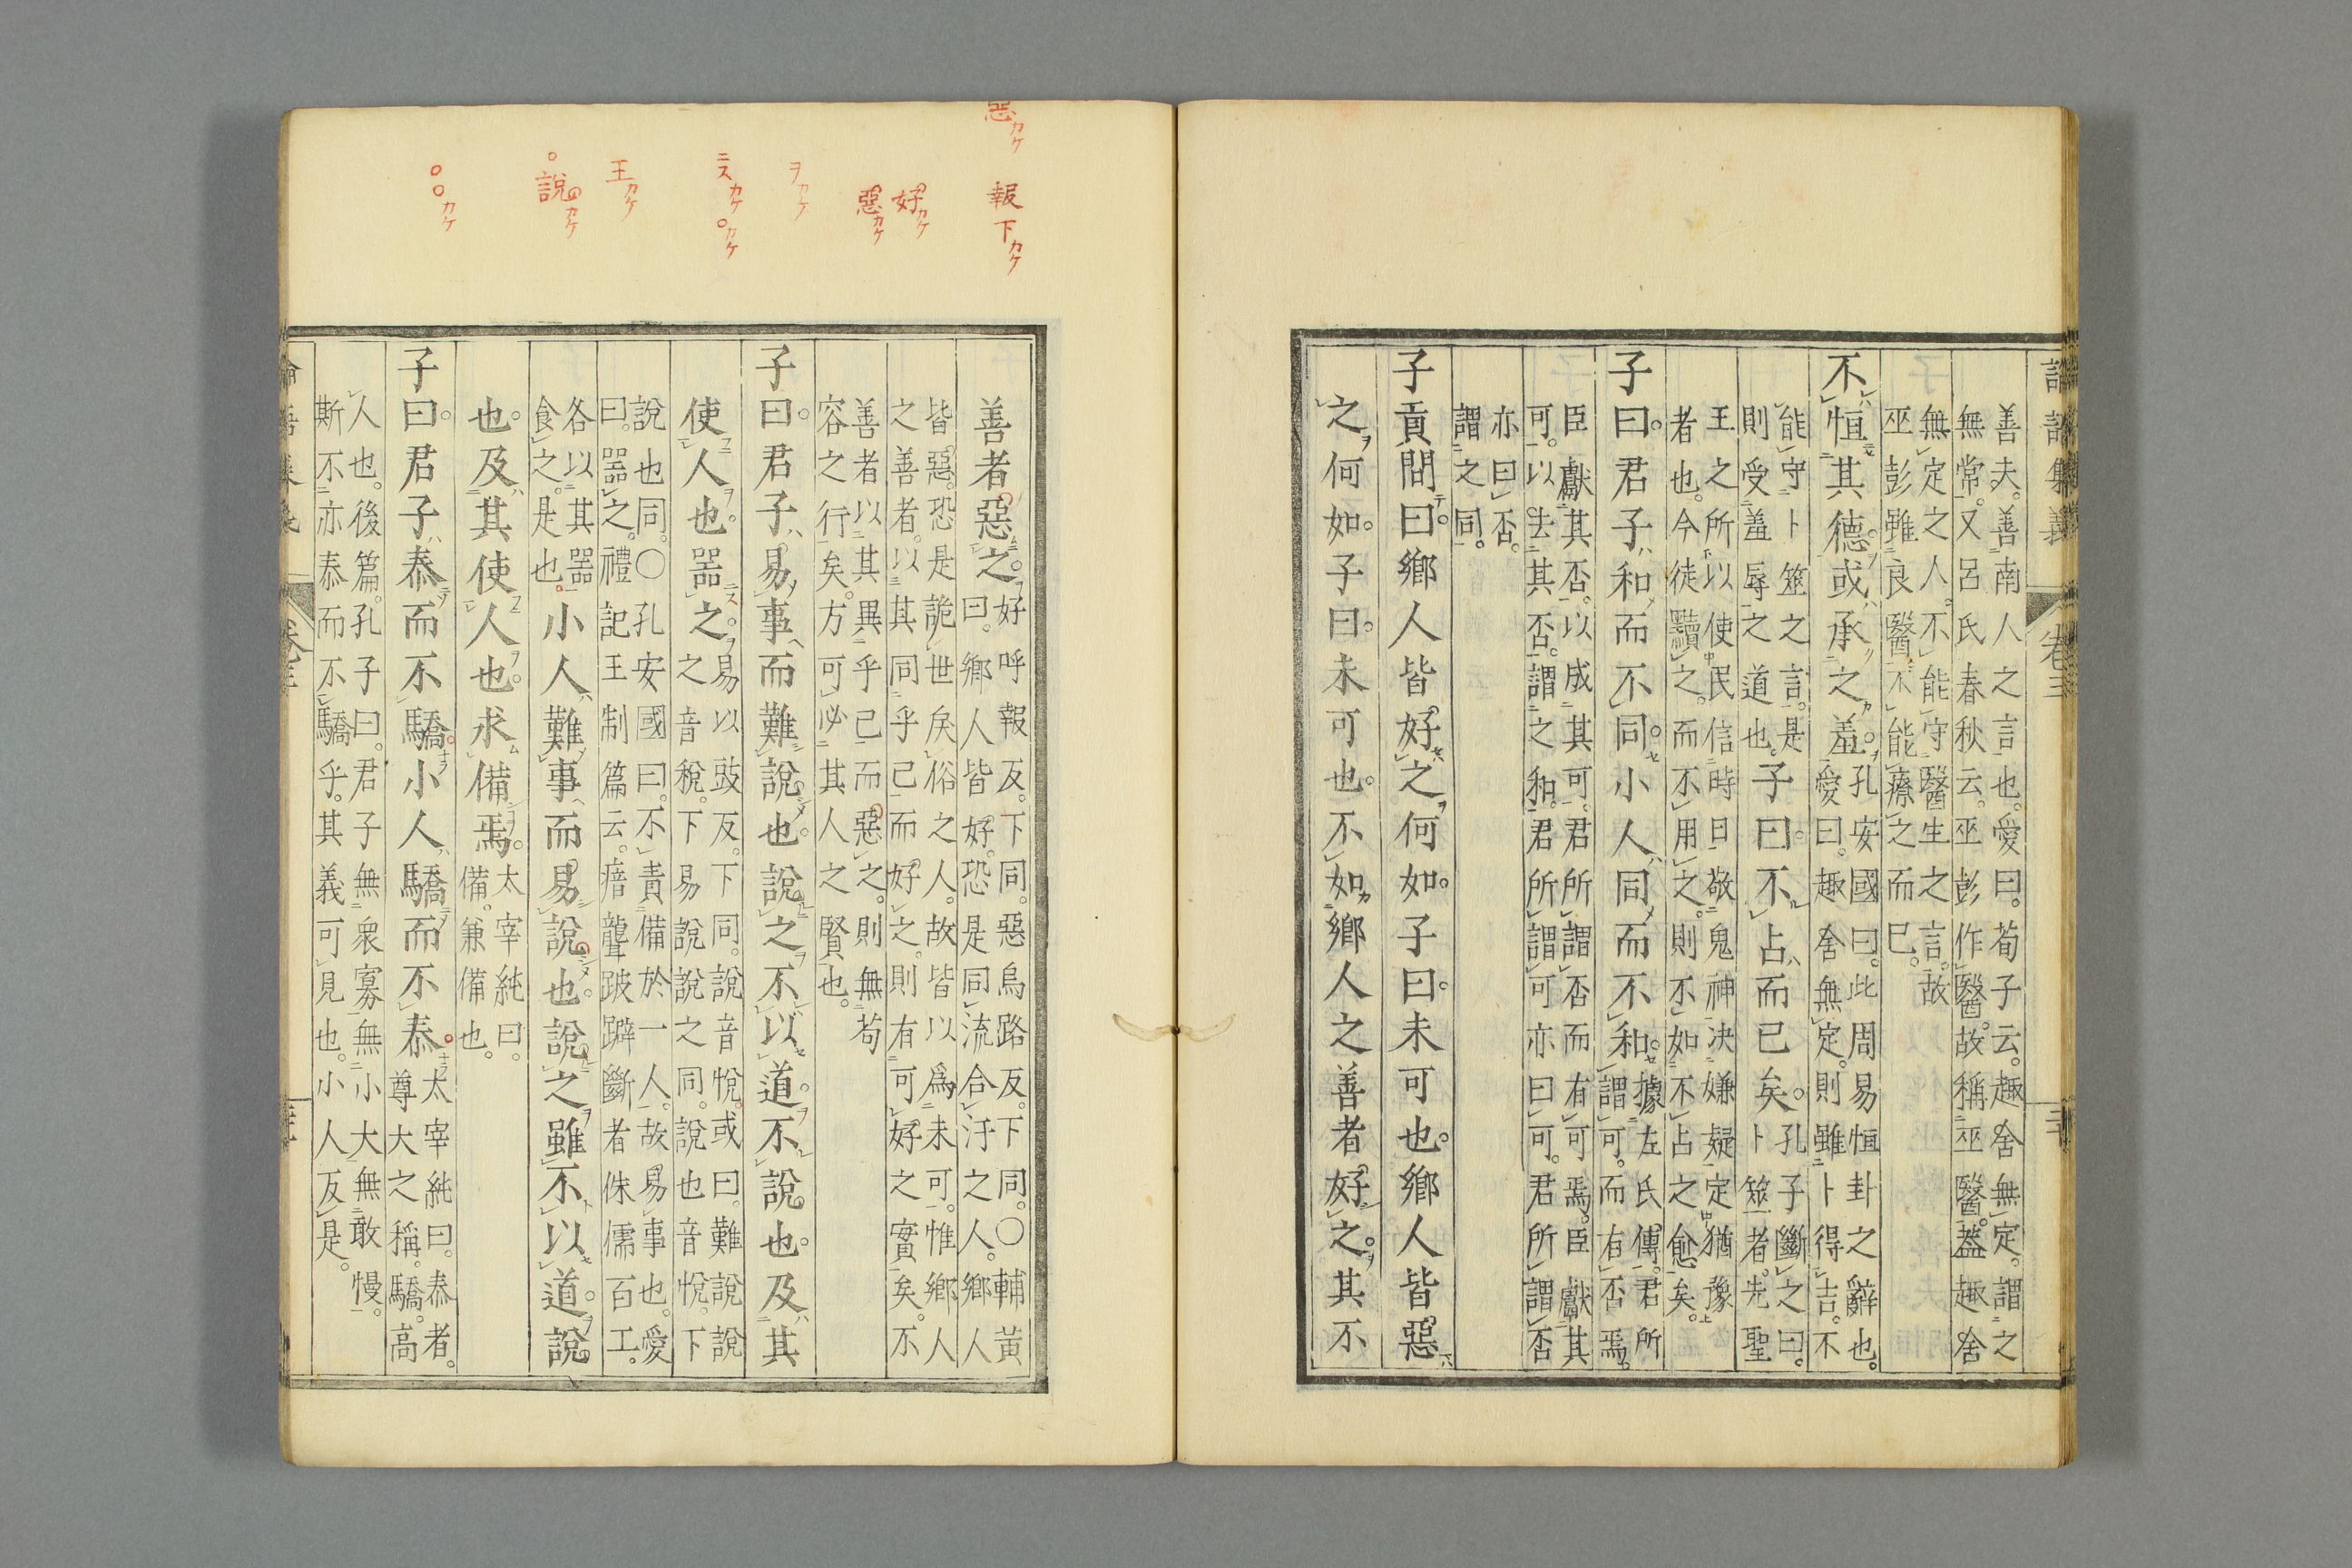 善夫。善南人之言也。愛曰。荀子云。趣舍無定。謂之
無常。又呂氏春秋云。巫彭作醫。故稱巫醫。蓋趣舍
無定之人。不能守醫生之言。故
巫彭雖良醫不能療之而已。
不恒其德。或承之羞。
孔安國曰。此周易恒卦之辭也。
愛曰。趣舍無定。則雖卜得吉。不
能守卜筮之言。是
則受羞辱之道也。
子曰。不占而已矣。
孔子斷之曰。
卜筮者。先聖
王之所以使民信時日敬鬼神决嫌疑定猶豫
者也。今徒黷之。而不用之。則不如不占之愈矣。
子曰。君子和而不同。小人同而不和。
據左氏傳。君所
謂可。而有否焉。
臣獻其否。以成其可。君所謂否而有可焉。臣獻其
可。以去其否。謂之和。君所謂可亦曰可。君所謂否
亦曰否。
謂之同。
子貢問曰。鄉人皆好之何如。子曰。未可也。鄉人皆惡
之何如。子曰。未可也。不如鄉人之善者好之。其不
惡カケ
報下カケ
好カケ
惡カケ
ヲカケ
ニスカケ 〇カケ
王カケ
〇說カケ
〇〇カケ
善者惡之。
好呼報反。下同。惡烏路反。下同。〇輔黃
曰。鄉人皆好。恐是同流合汙之人。鄉人
皆惡。恐是詭世戾俗之人。故皆以爲未可。惟鄉人
之善者。以其同乎己而好之。則有可好之實矣。不
善者以其異乎己而惡之。則無苟
容之行矣。方可必其人之賢也。
子曰。君子易事而難說也。說之不以道。不說也。及其
使人也。器之。
易以豉反。下同。說音悅。或曰。難說說
之音稅。下易說說之同。說也音悅。下
說也同。〇孔安國曰。不責備於一人。故易事也。愛
曰。器之。禮記王制篇云。瘖聾跛躃斷者侏儒百工。
各以其器
食之。是也。
小人難事而易說也。說之雖不以道。說
也。及其使人也。求備焉。
太宰純曰。
備。兼備也。
子曰。君子泰而不驕。小人驕而不泰。
太宰純曰。泰者。
尊大之稱。驕。高
人也。後篇。孔子曰。君子無衆寡無小大無敢慢。
斯不亦泰而不驕乎。其義可見也。小人反是。